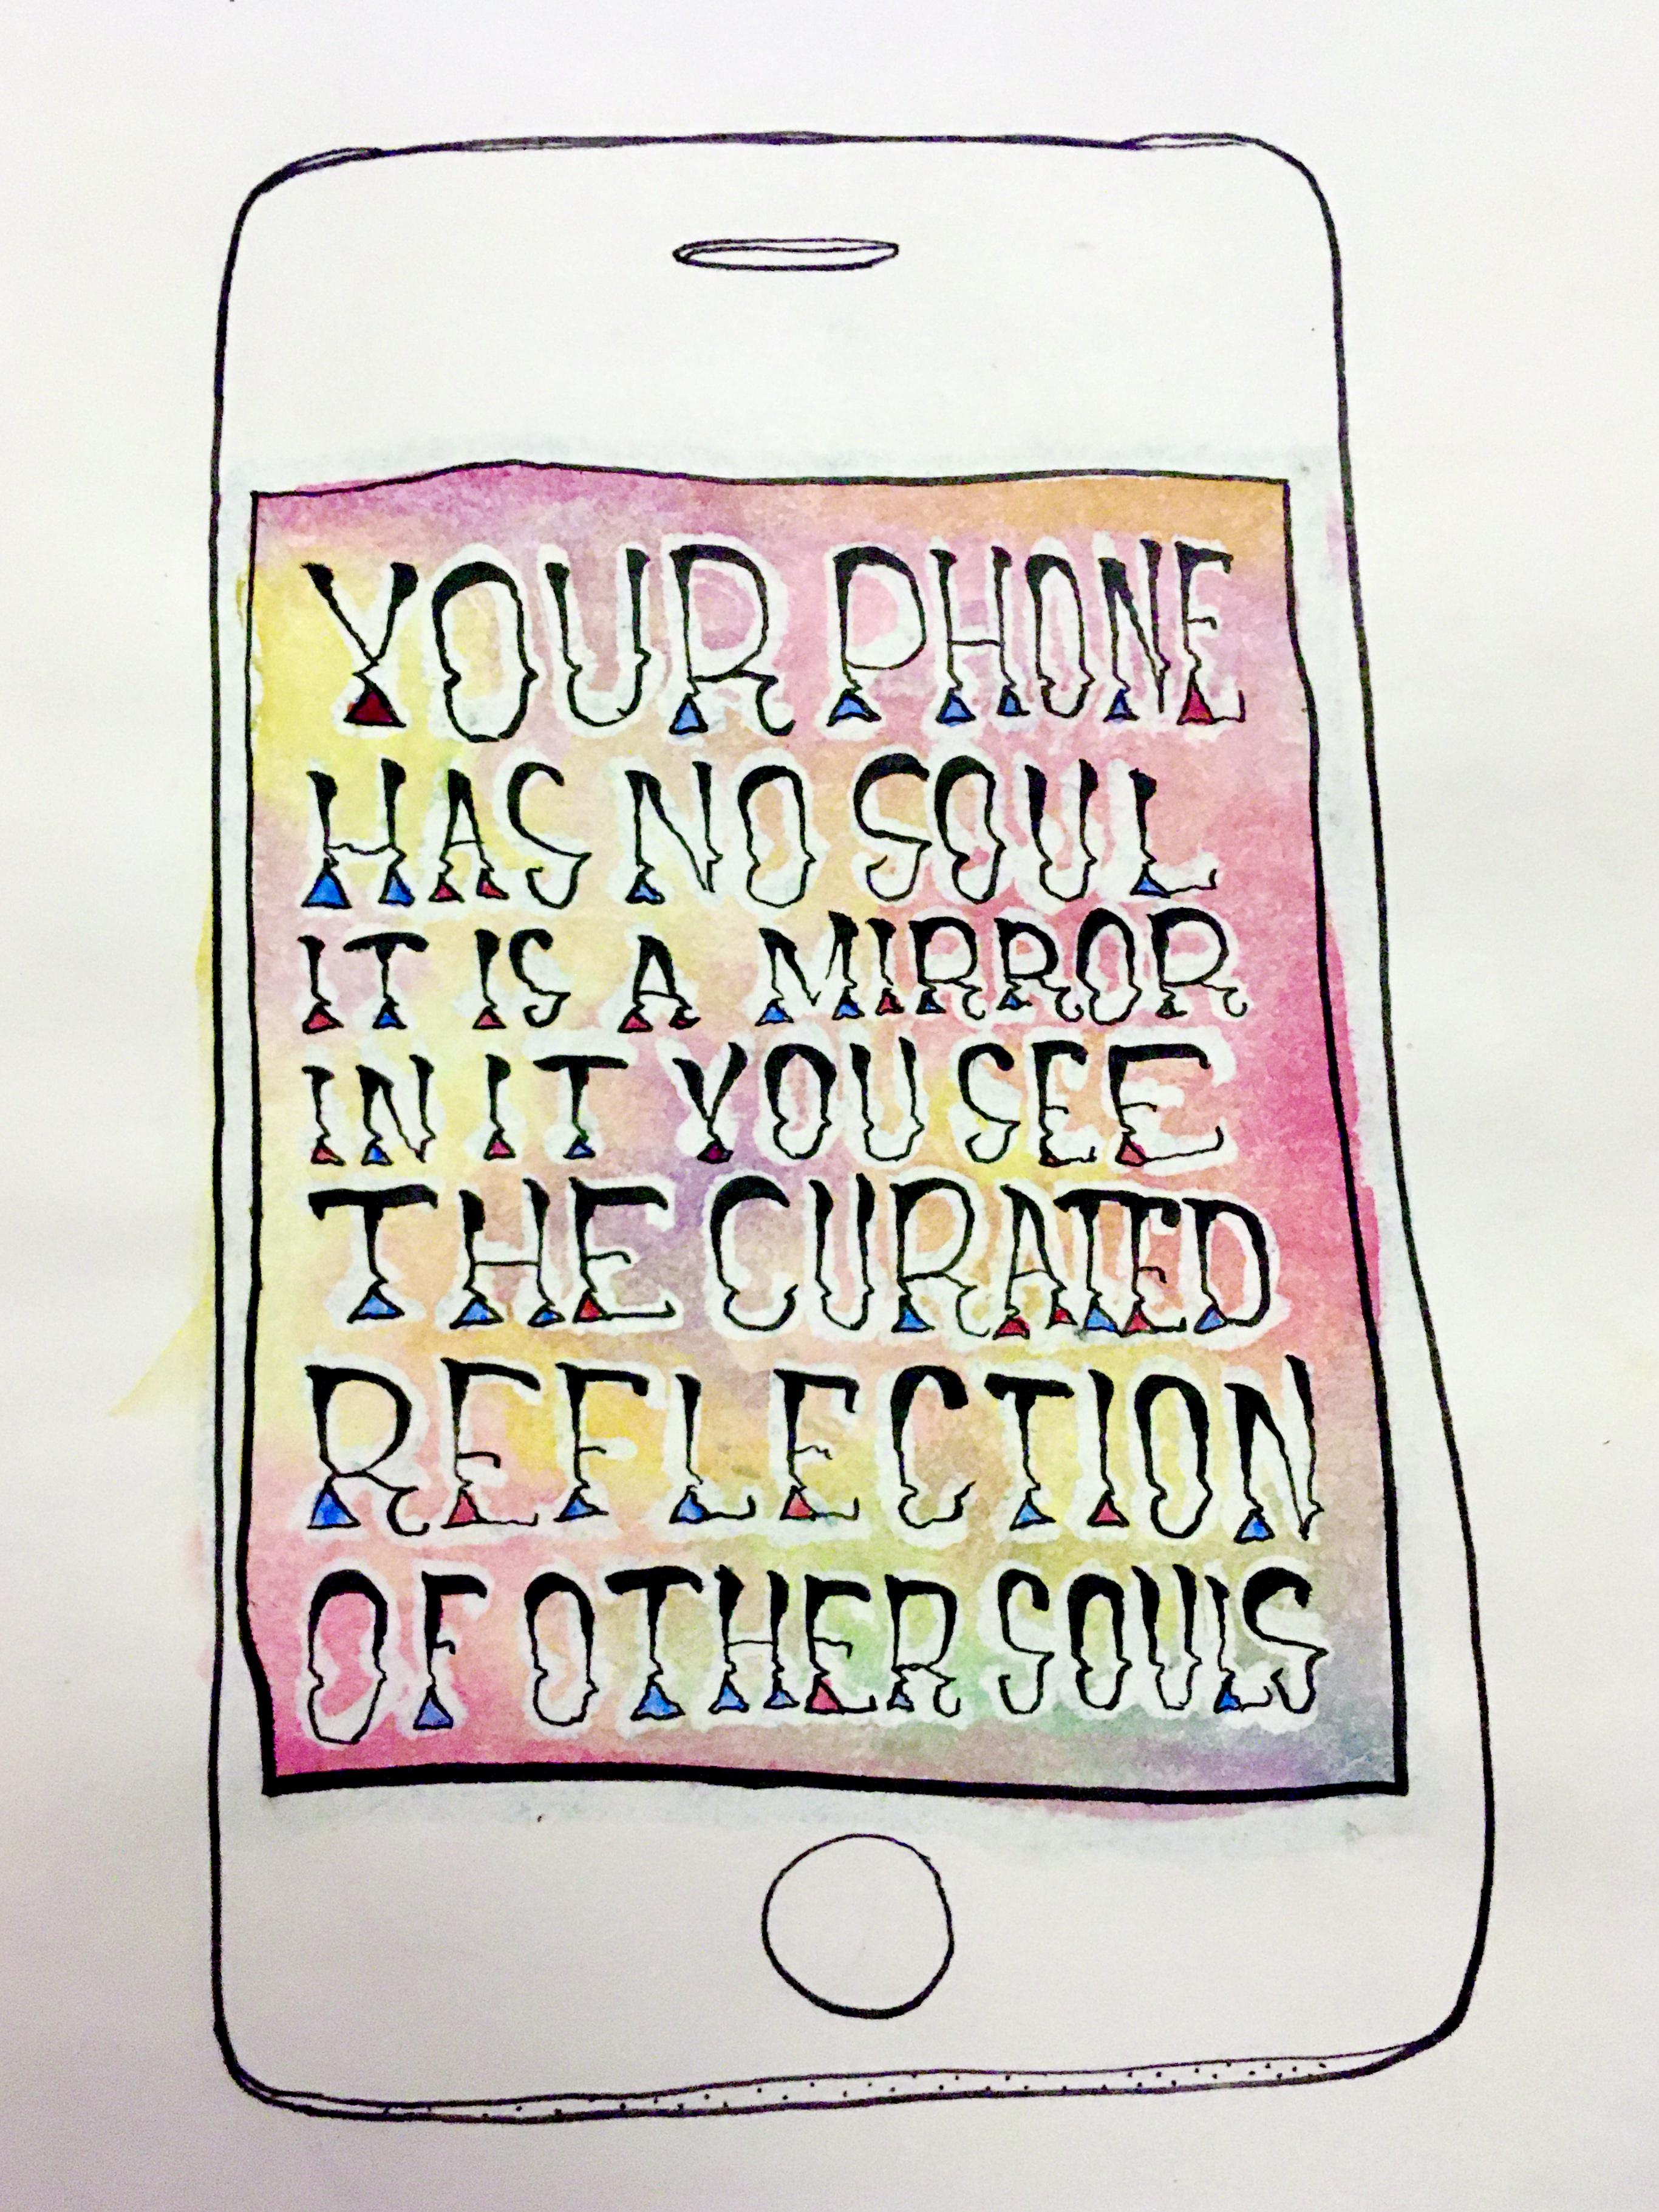 YOUR PHONE
HAS NO SOUL
IT IS A MIRROR
IN IT YOU SEE
THE CURATED
REFLECTION
OF OTHER SOULS